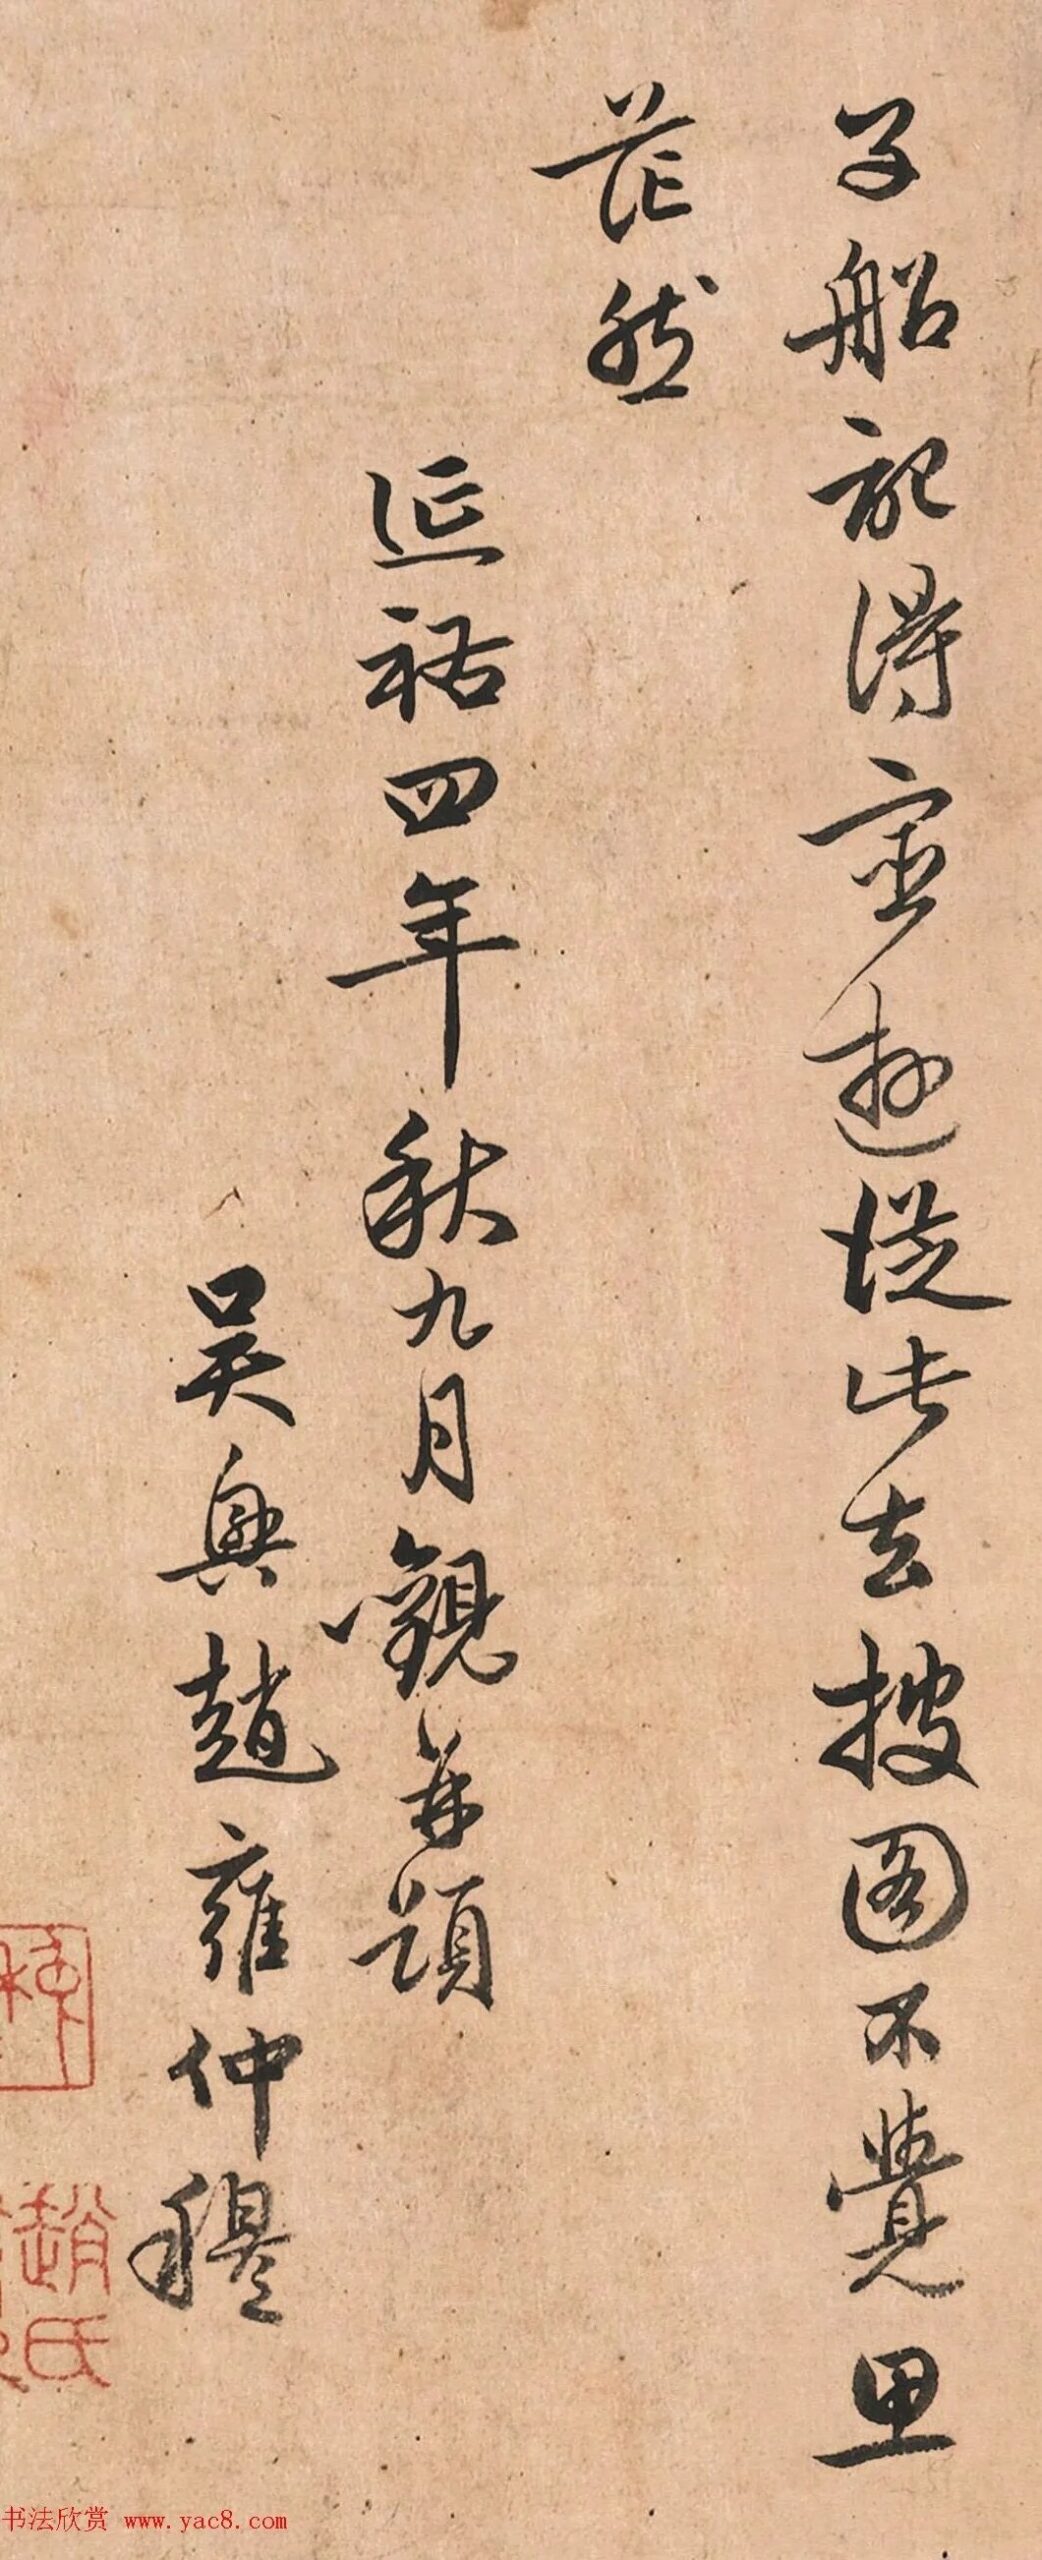 子船記得室遊從此去披圖不覺思
茫然
延祐四年秋九月觀并題
吳興趙雍仲穆
趙氏
书法欣赏 www.yac8.com